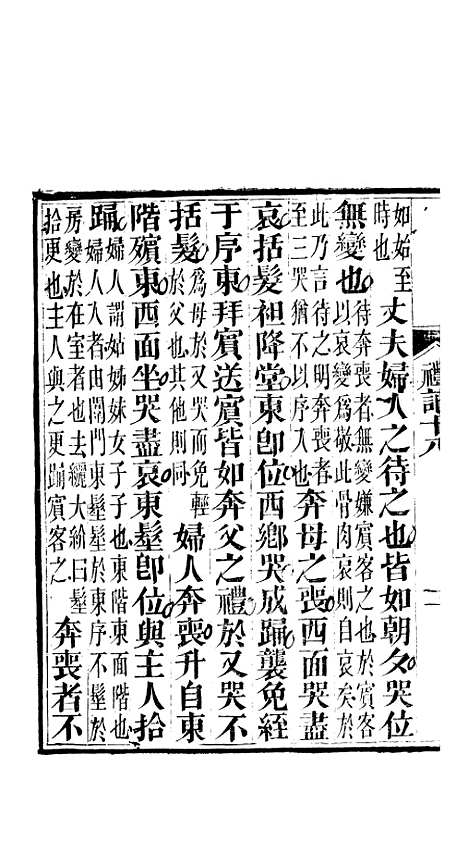 禮記十八
二
如始至
時也
丈夫婦人之待之也皆如朝夕哭位
無變也
待奔喪者無變嫌賓客之也於賓客
以哀變爲敬此骨肉哀則自哀矣於
此乃言待之明奔喪者
至三哭猶不以序入也
奔母之喪西面哭盡
哀括髮袒降堂東即位西鄉哭成踊襲免絰
于序東拜賓送賓皆如奔父之禮於又哭不
括髮
爲母於又哭而免輕
於父也其他則同
婦人奔喪升自東
階殯東西面坐哭盡哀東髽即位與主人拾
踊
婦人謂姑姊妹女子子也東階東面階也
婦人入者由闈門東髽髽於東序不髽於
房變於在室者也去纚大紒曰髽
拾更也主人與之更踊賓客之
奔喪者不